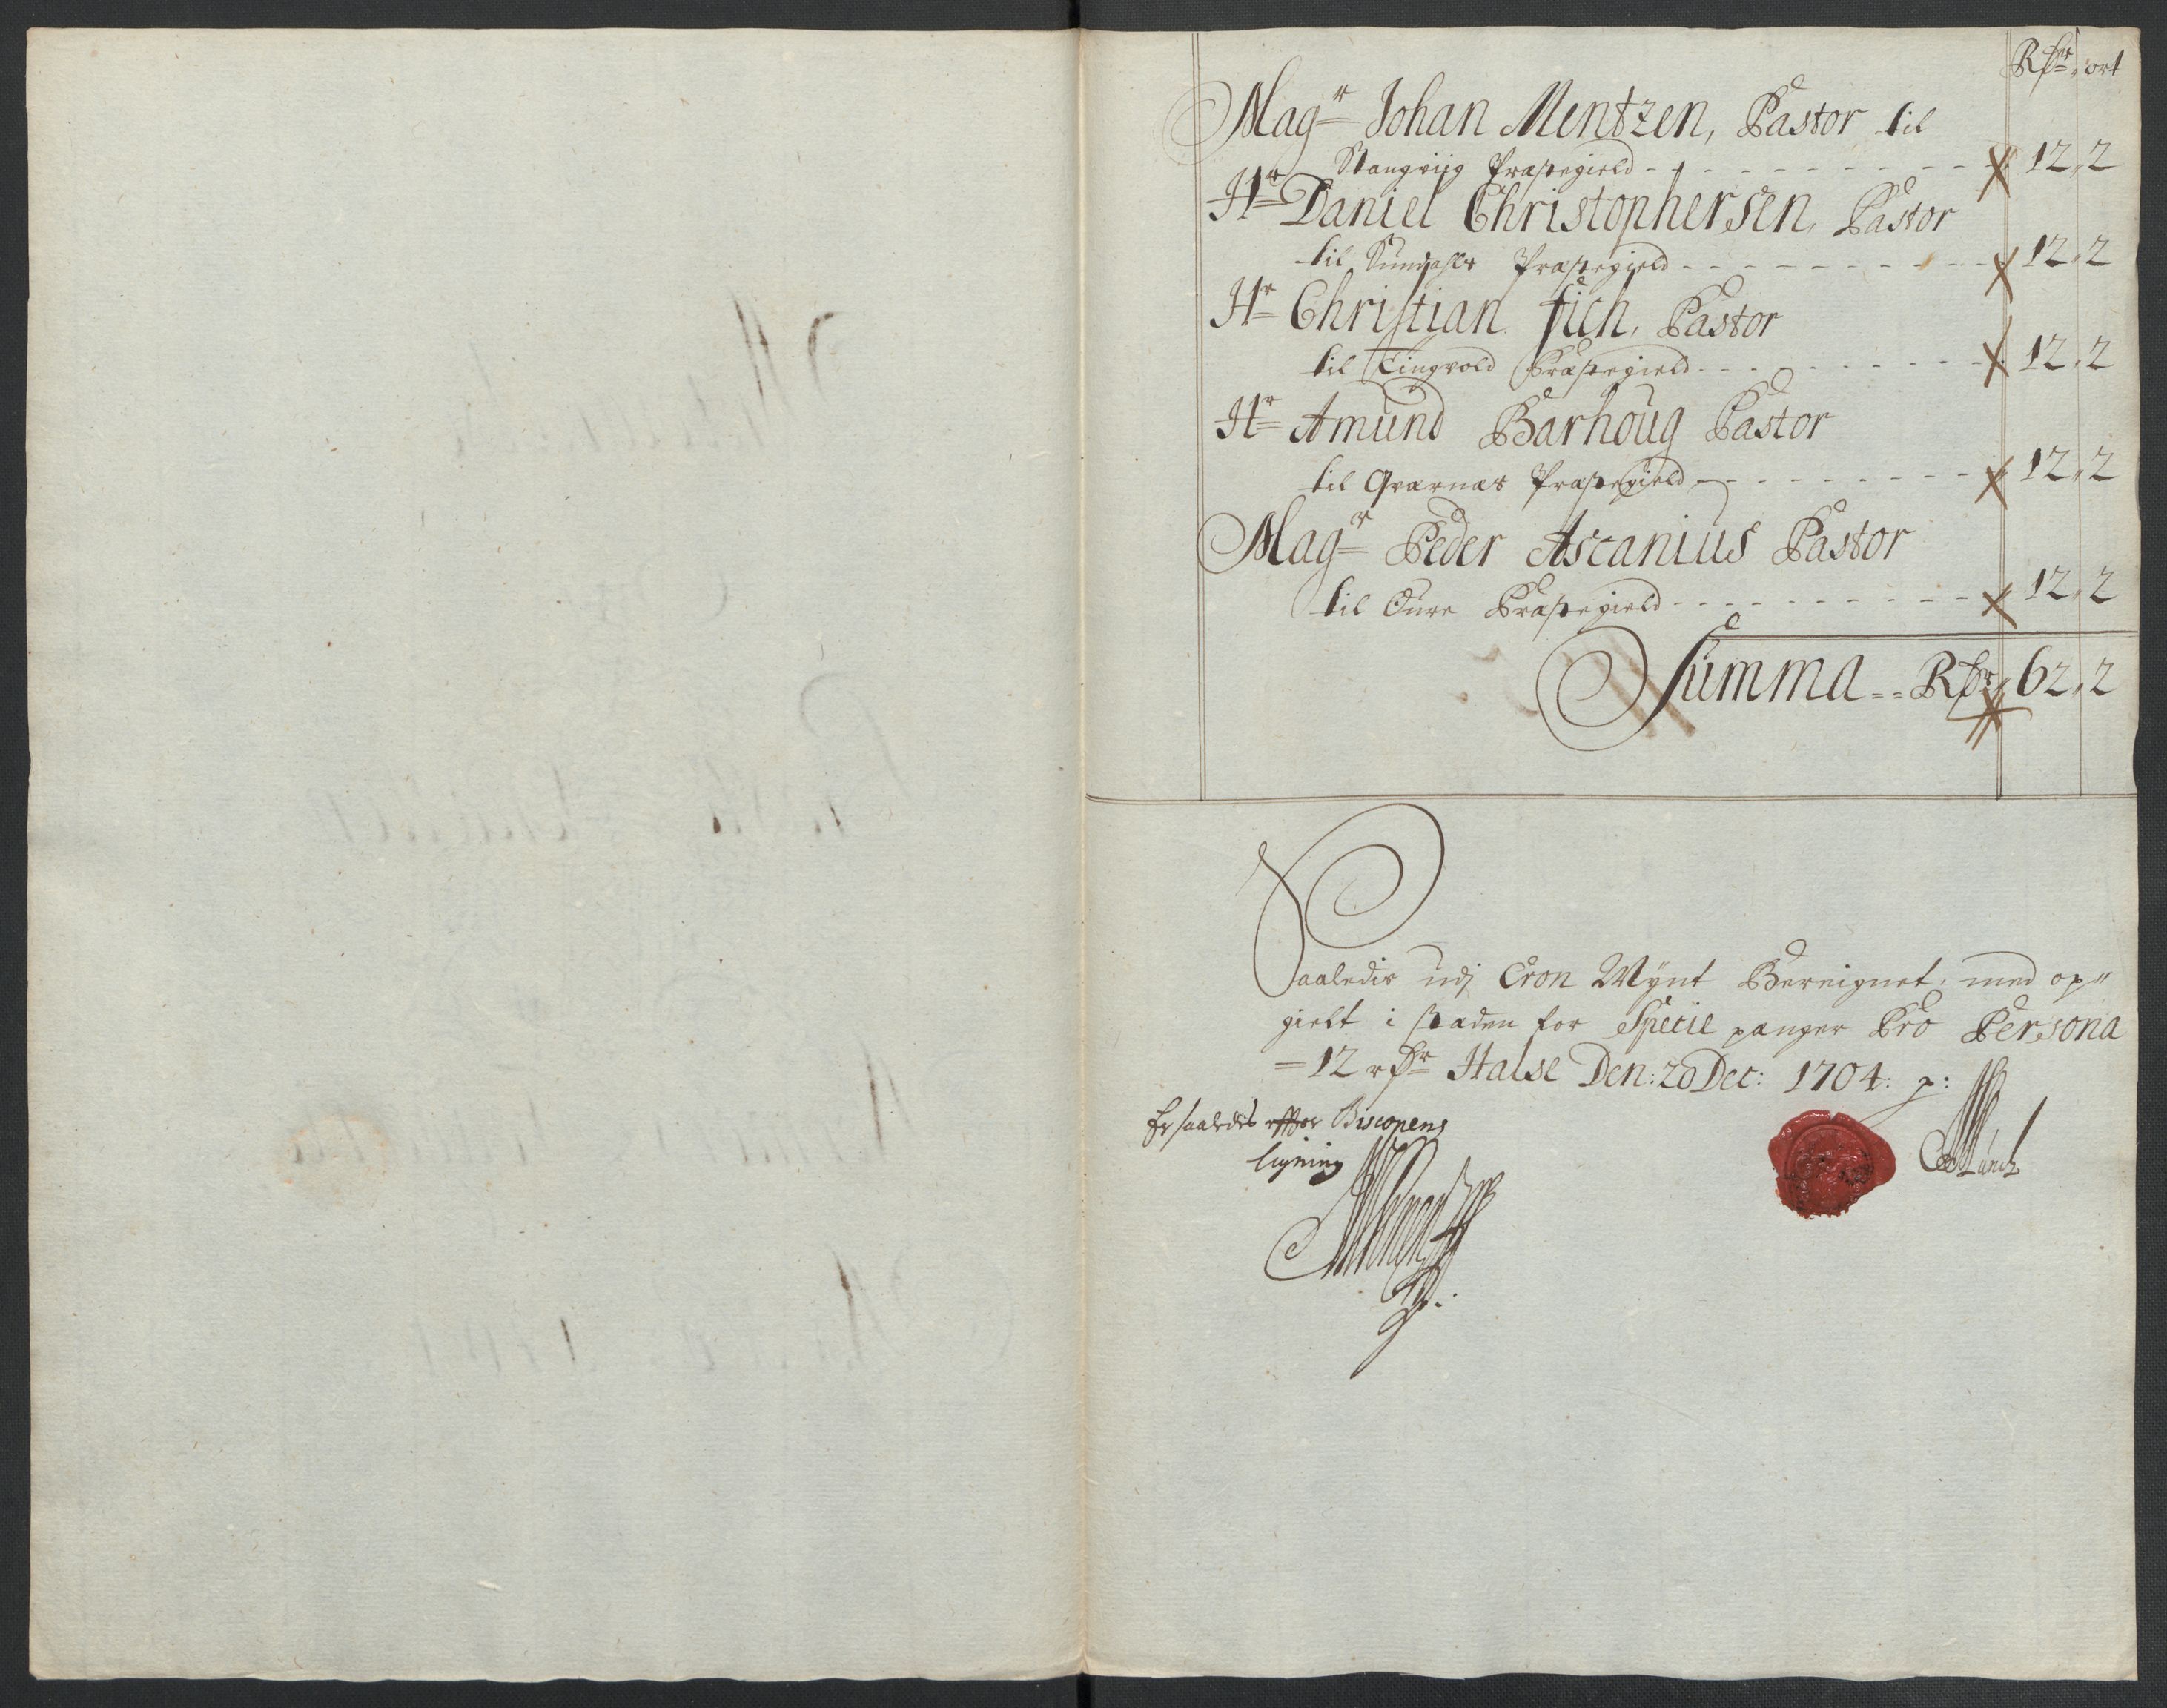 Rdr ort
Magr Johan Mentzen, Pastor til
Stangviig Præstegield - - - 12,2
Hr Daniel Christophersen, Pastor
til Sundahls Præstegield - - - 12,2
Hr Christian Fich, Pastor
til Tingvold Præstegield - - - 12,2
Hr Amund Barhoug Pastor
til Qværnæs Præstegield - - - 12,2
Magr Peder Ascanius Pastor
til Øure Præstegield - - - 12,2
Summa - - Rdr 62,2
Saaledis udj Cron Mÿnt Bereignet, med op„
gield i staden for Spetie penger Pro Persona
= 12 rdr Halse Den: 20 Dec: 1704: p:
Er saaledes effter Biscopens
ligning
Münch